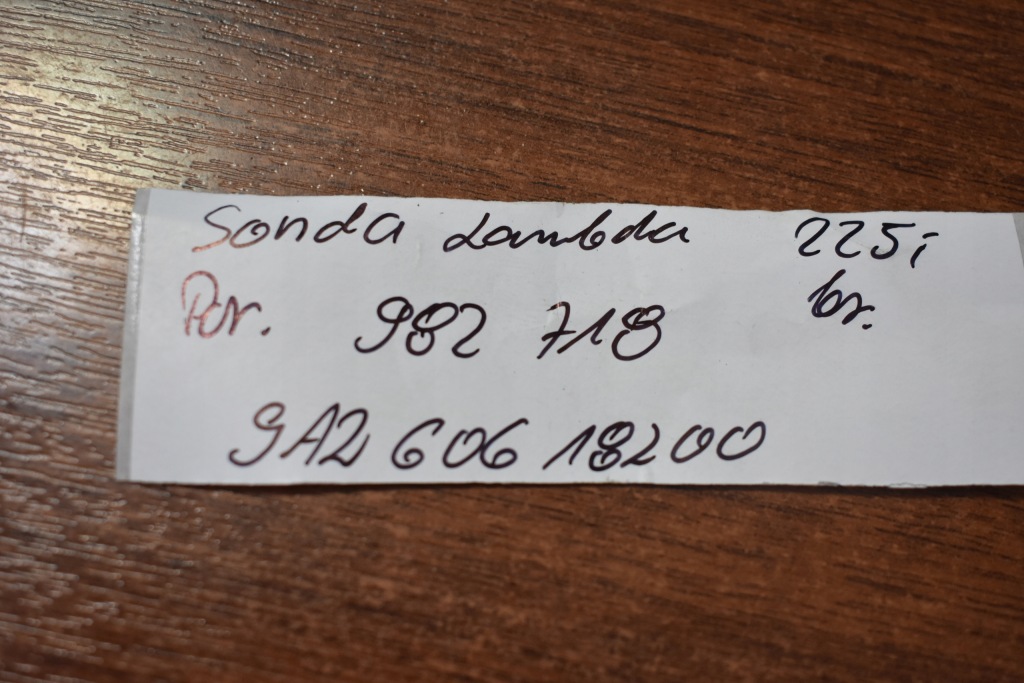 Sonda Lambda 225i
Por. 982 718 br.
9A2 606 18200